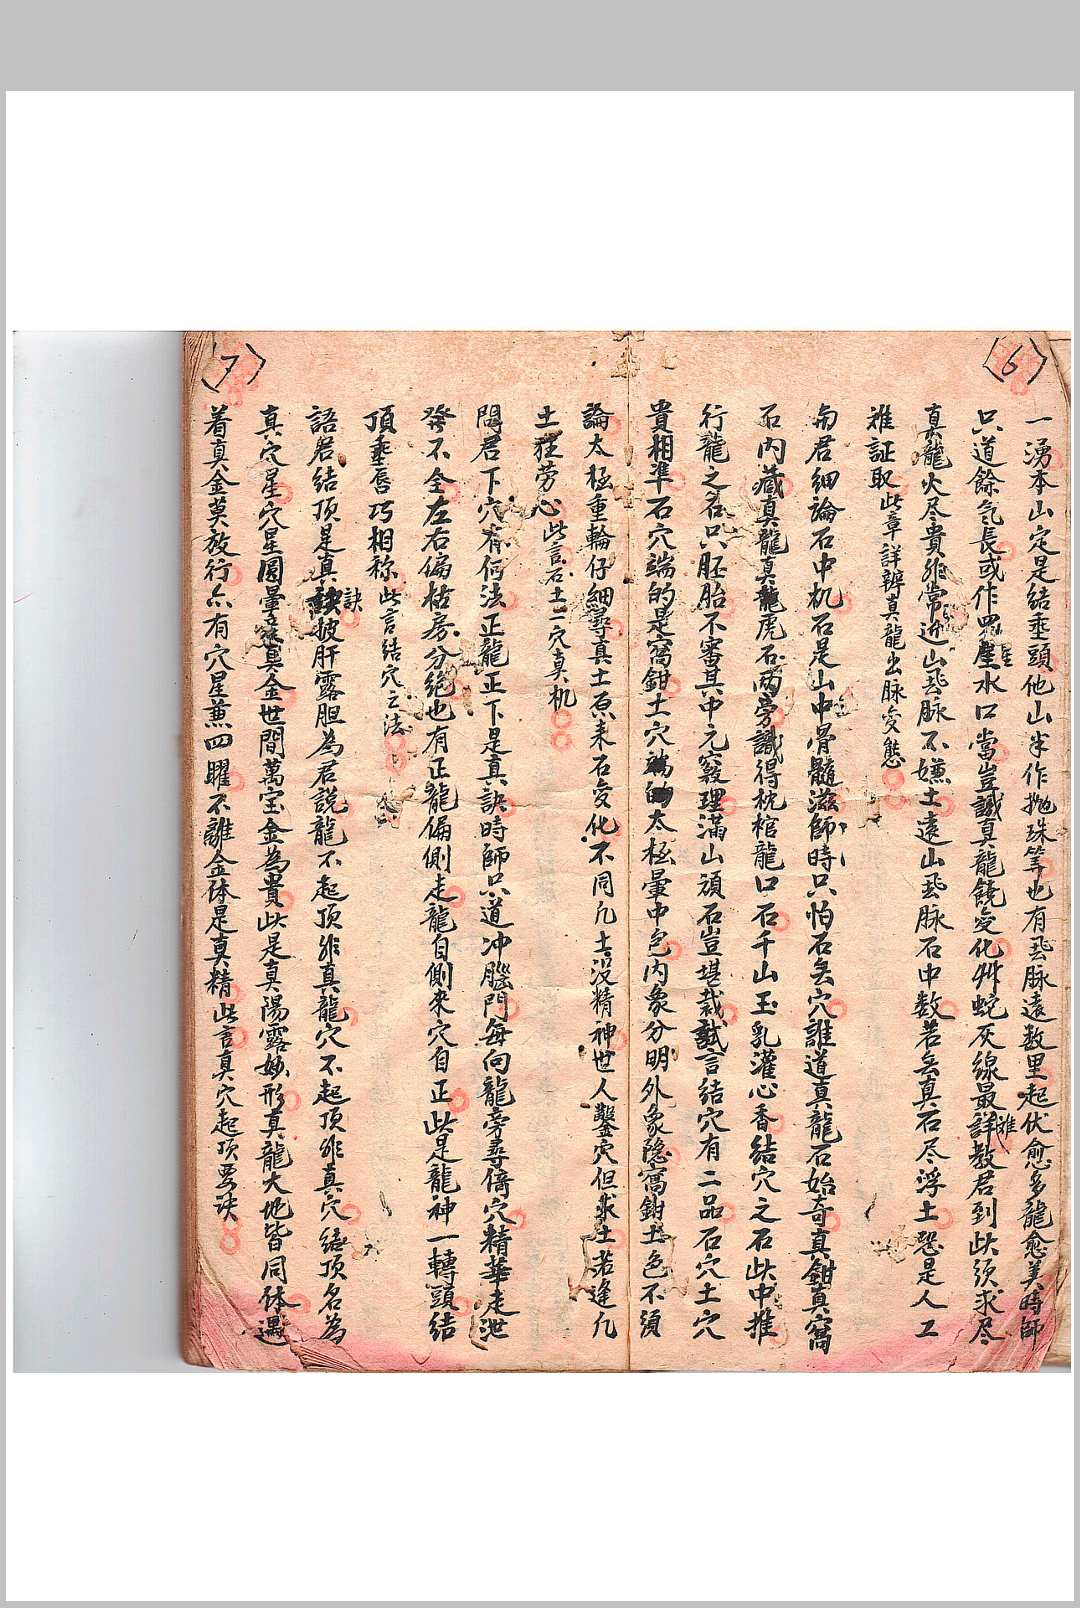 (6)
一湧本山定是結垂頭他山半作抛珠等也有乖脉遠数里起伏愈多龍愈美時師
只道餘气長或作四星水口當豈識真龍饒变化艸蛇灰線最難詳教君到此須求尽
真龍火尽貴非常近山乖脉不嫌土遠山乖脉石中数若無真石尽浮土恐是人工
难証取此章詳辨真龍出脉变態
為君細論石中机石是山中骨髓滋師時只怕石無穴誰道真龍石始奇真鉗真窩
石内藏真龍真虎石両旁識得枕棺龍口石千山玉乳灌心香結穴之石此中推
行龍之名只胚胎不審其中元竅理滿山頑石豈堪裁試言結穴有二品石穴土穴
貴相準石穴端的是窩鉗土穴端的太極暈中色内象分明外象隐窩鉗土色不須
論太極重輪仔細尋真土原来石变化不同凡土没精神世人鑿穴但求土若逢凡
土狂劳心此言石土二穴真机
(7)
問君下穴有何法正龍正下是真訣時師只道冲腦門每向龍旁尋倚穴精華走泄
発不全左右偏枯房分絶也有正龍偏側走龍自側來穴自正此是龍神一轉頭結
頂垂唇巧相称此言結穴之法
語君結頂是真訣披肝露胆為君説龍不起頂非真龍穴不起頂非真穴結頂名為
真穴星穴星圓暈是真金世間萬宝金為貴此是真陽露妙形真龍大地皆同体遇
着真金莫放行亦有穴星兼四曜不離金体是真精此言真穴起頂要诀